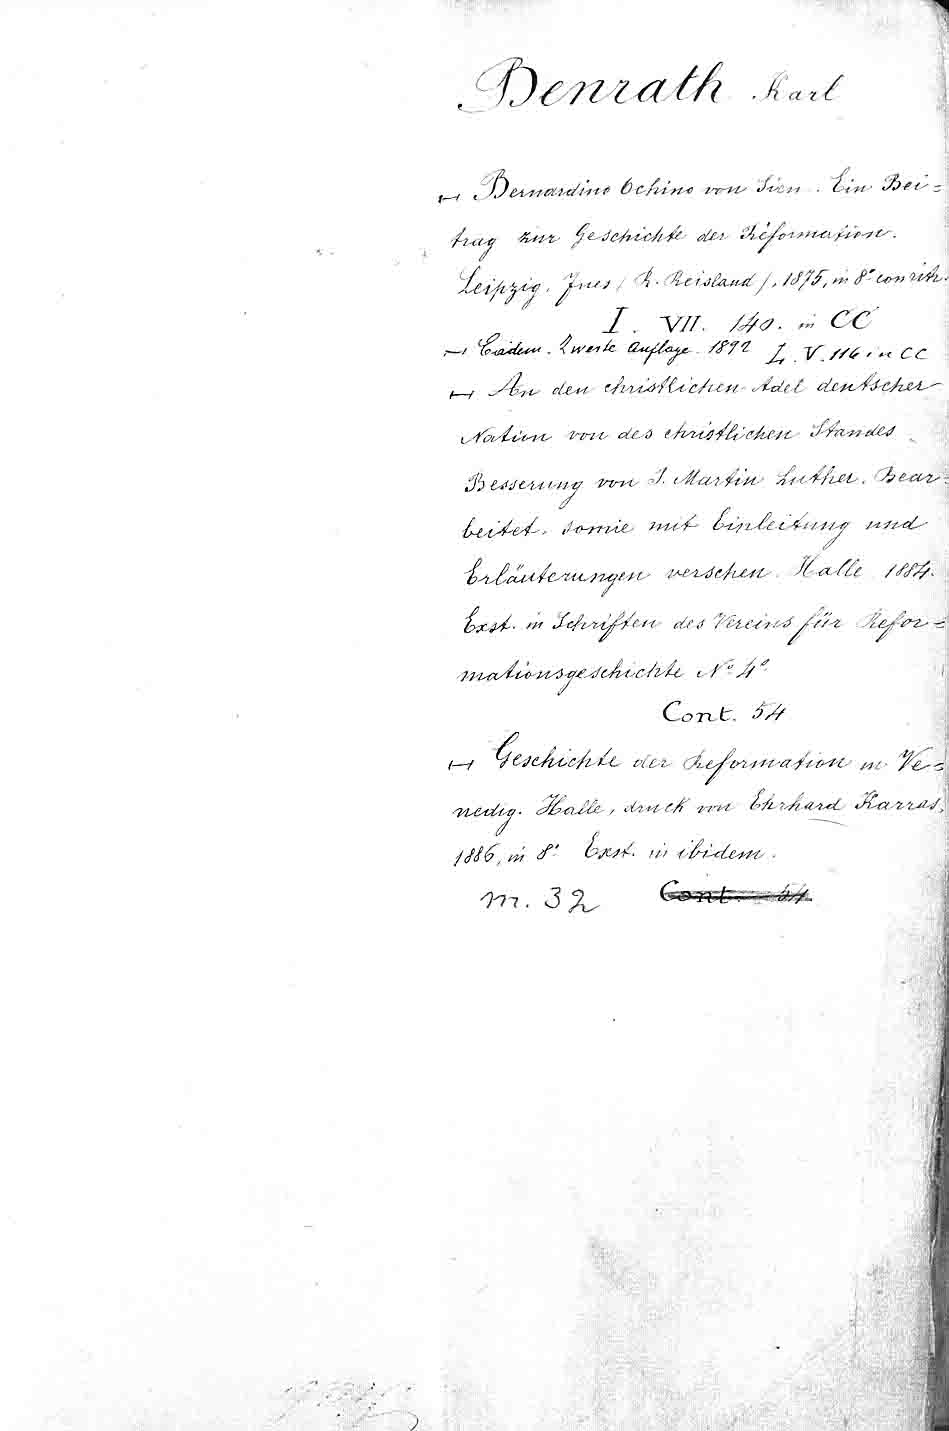 Benrath Karl
⊢⊣ Bernardino Ochino von Sien. Ein Bei=
trag zur Geschichte der Reformation.
Leipzig, Fues (R. Reisland), 1875, in 8° con ritr.
I. VII. 140. in CC
⊢⊣ Eadem. Zweite Auflage. 1892 L. V. 116 in CC
⊢⊣ An den christlichen Adel deutscher
Nation von des christlichen Standes
Besserung von D. Martin Luther. Bear=
beitet, somie mit Einleitung und
Erläuterungen verschen. Halle 1884.
Exst. in Schriften des Vereins für Refor=
mationsgeschichte N° 4°
Cont. 54
⊢⊣ Geschichte der Reformation in Ve=
nedig. Halle, druck von Ehrhard Karras,
1886, in 8° Exst. in ibidem.
m. 32 Cont. 54